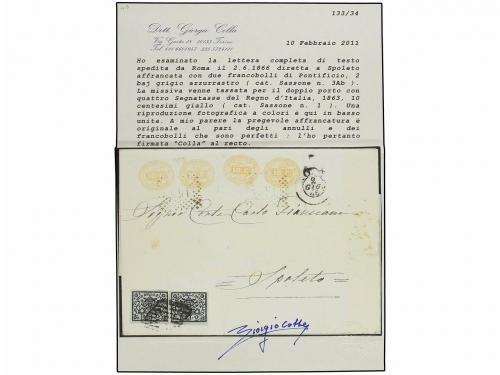 133/34
Dott. Giorgio Colla
10 Febbraio 2011
Ho esaminato la lettera completa di testo
spedita da Roma il 2.6.1866 diretta a Spoleto
affrancata con due francobolli di Pontificio, 2
baj grigio azzurrastro ( cat. Sassone n. 3Ab ).
La missiva venne tassata per il doppio porto con
quattro Segnatasse del Regno d'Italia, 1863, 10
centesimi giallo ( cat. Sassone n. 1 ). Una
riproduzione fotografica a colori e qui in basso
unita. A mio parere la pregevole affrancatura è
originale al pari degli annulli e dei
francobolli che sono perfetti : l'ho pertanto
firmata "Colla" al recto.
Conte Carlo
= Spoleto =
Giorgio Colla